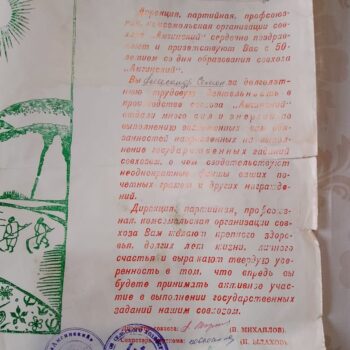 Дирекция, партийная, профсоюз-
ная, комсомольская организация сов-
хоза "Амгинский" сердечно поздрав-
ляют и приветствуют Вас с 50-
летием со дня образования совхоза
"Амгинский".
Вы, Александр Семен за долголет-
нюю трудовую деятельность в
производстве совхоза "Амгинский"
отдали много сил и энергии по
выполнению возложенных обя-
занностей направленных на выпол-
нение государственных заданий
совхозом, о чем свидетельствуют
неоднократные факты ваших по-
четных грамот и других награжде-
ний.
Дирекция, партийная, профсоюз-
ная, комсомольская организации сов-
хоза Вам желают крепкого здоро-
вья, долгих лет жизни, личного
счастья и выражают твердую уве-
ренность в том, что впредь вы
будете принимать активное учас-
тие в выполнении государственных
заданий нашим совхозом.
совхоза: (В. МИХАЙЛОВ)
Секретарь парткома: (И. ЫЛАХОВ)